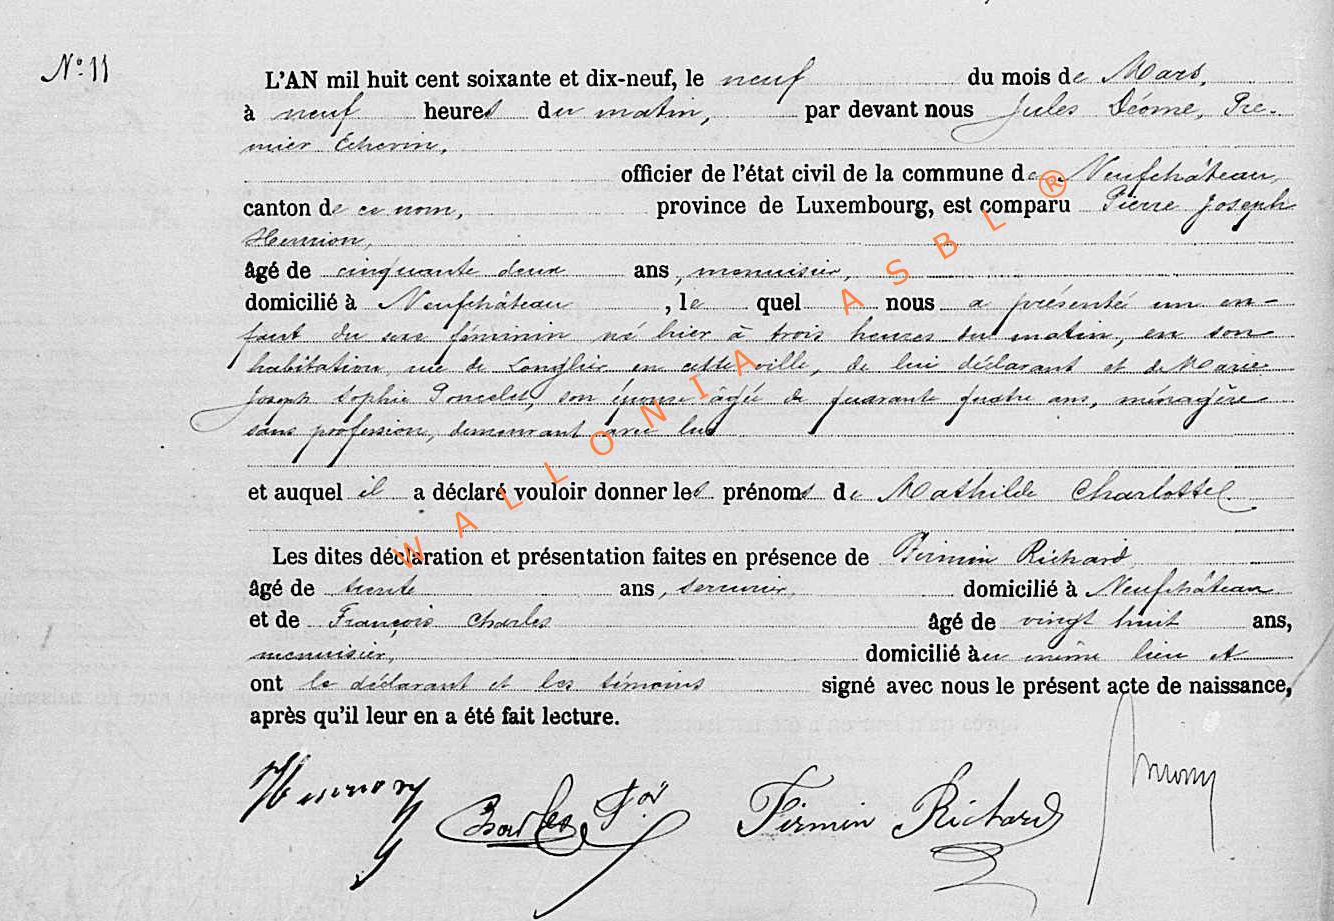 N° 11
L'AN mil huit cent soixante et dix-neuf, le neuf du mois de Mars,
à neuf heures du matin, par devant nous Jules Déome, Pre-
mier Echevin,
officier de l'état civil de la commune de Neufchâteau,
canton de ce nom, province de Luxembourg, est comparu Pierre Joseph
Hennion,
âgé de cinquante deux ans, menuisier,
domicilié à Neufchâteau, le quel nous a présenté un en-
fant du sexe féminin né hier à trois heures du matin, en son
habitation, rue de Longlier en cette ville, de lui déclarant et de Marie
Joseph Sophie Poncelet, son épouse âgée de quarante quatre ans, ménagère
sans profession, demeurant avec lui
et auquel il a déclaré vouloir donner les prénoms de Mathilde Charlotte.
Les dites déclaration et présentation faites en présence de Firmin Richard
âgé de trente ans, serrurier, domicilié à Neufchâteau
et de François Charles âgé de vingt huit ans,
menuisier, domicilié au même lieu et
ont le déclarant et les témoins signé avec nous le présent acte de naissance,
après qu'il leur en a été fait lecture.
Charles Fois Firmin Richard
WALLONIA ASBL ®